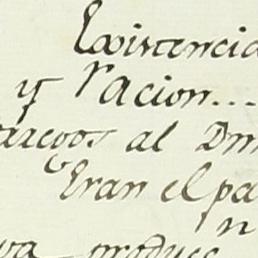 Existencia
y racion...
cargos al Dm
Eran el pa
n
va produc